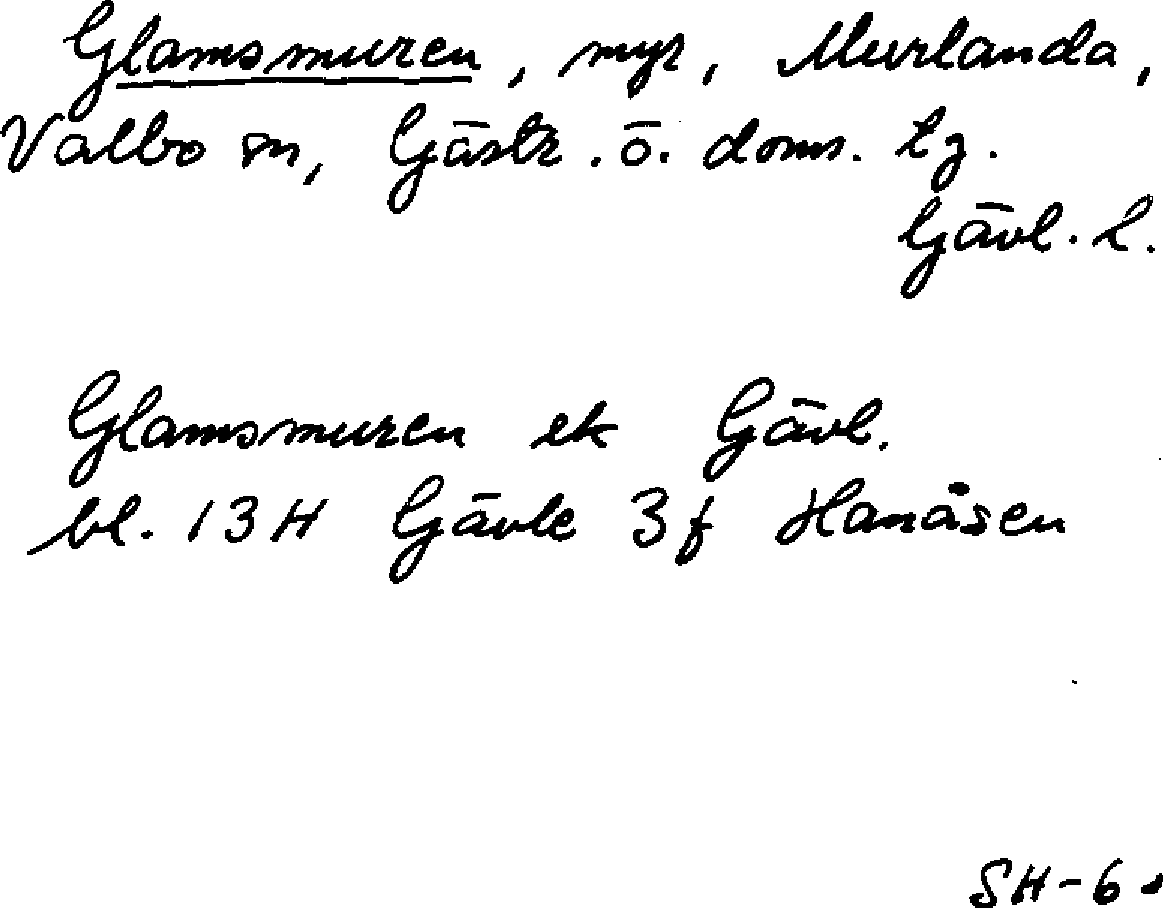 Glamsmuren, myr, Murlanda,
Valbo sn, Gästr. ö. doms. tg.
Gävl. l.
Glamsmuren ek Gävl.
bl. 13H Gävle 3f Hanåsen